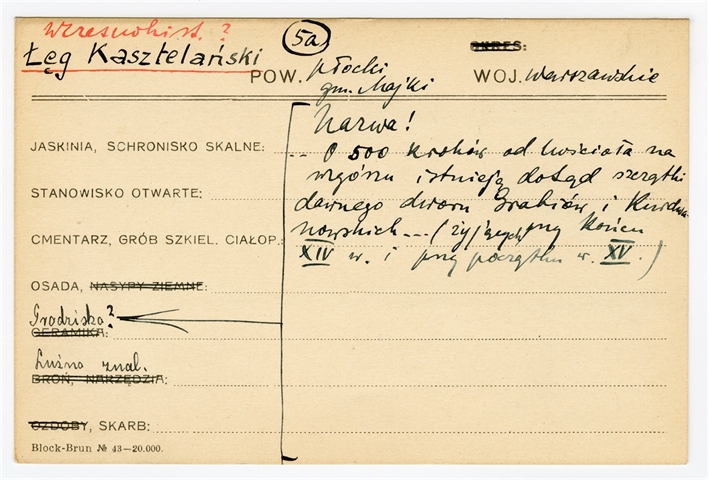 Wczesnohist. ?
Łęg Kasztelański
5a
OKRES:
POW. płocki
gm. Majki
WOJ. warszawskie
Nazwa!
JASKINIA, SCHRONISKO SKALNE:
O 500 kroków od kościoła na
STANOWISKO OTWARTE:
wzgórzu istnieją dotąd szczątki
dawnego dworu Grabiów i Kurdwa
CMENTARZ, GRÓB SZKIEL. CIAŁOP.:
nowskich --- (żyjących przy końcu
XIV w. i przy początku w. XV.)
OSADA, NASYPY ZIEMNE:
Grodzisko?
CERAMIKA:
Luźno znal.
BROŃ, NARZĘDZIA:
OZDOBY, SKARB:
Block-Brun № 43—20.000.